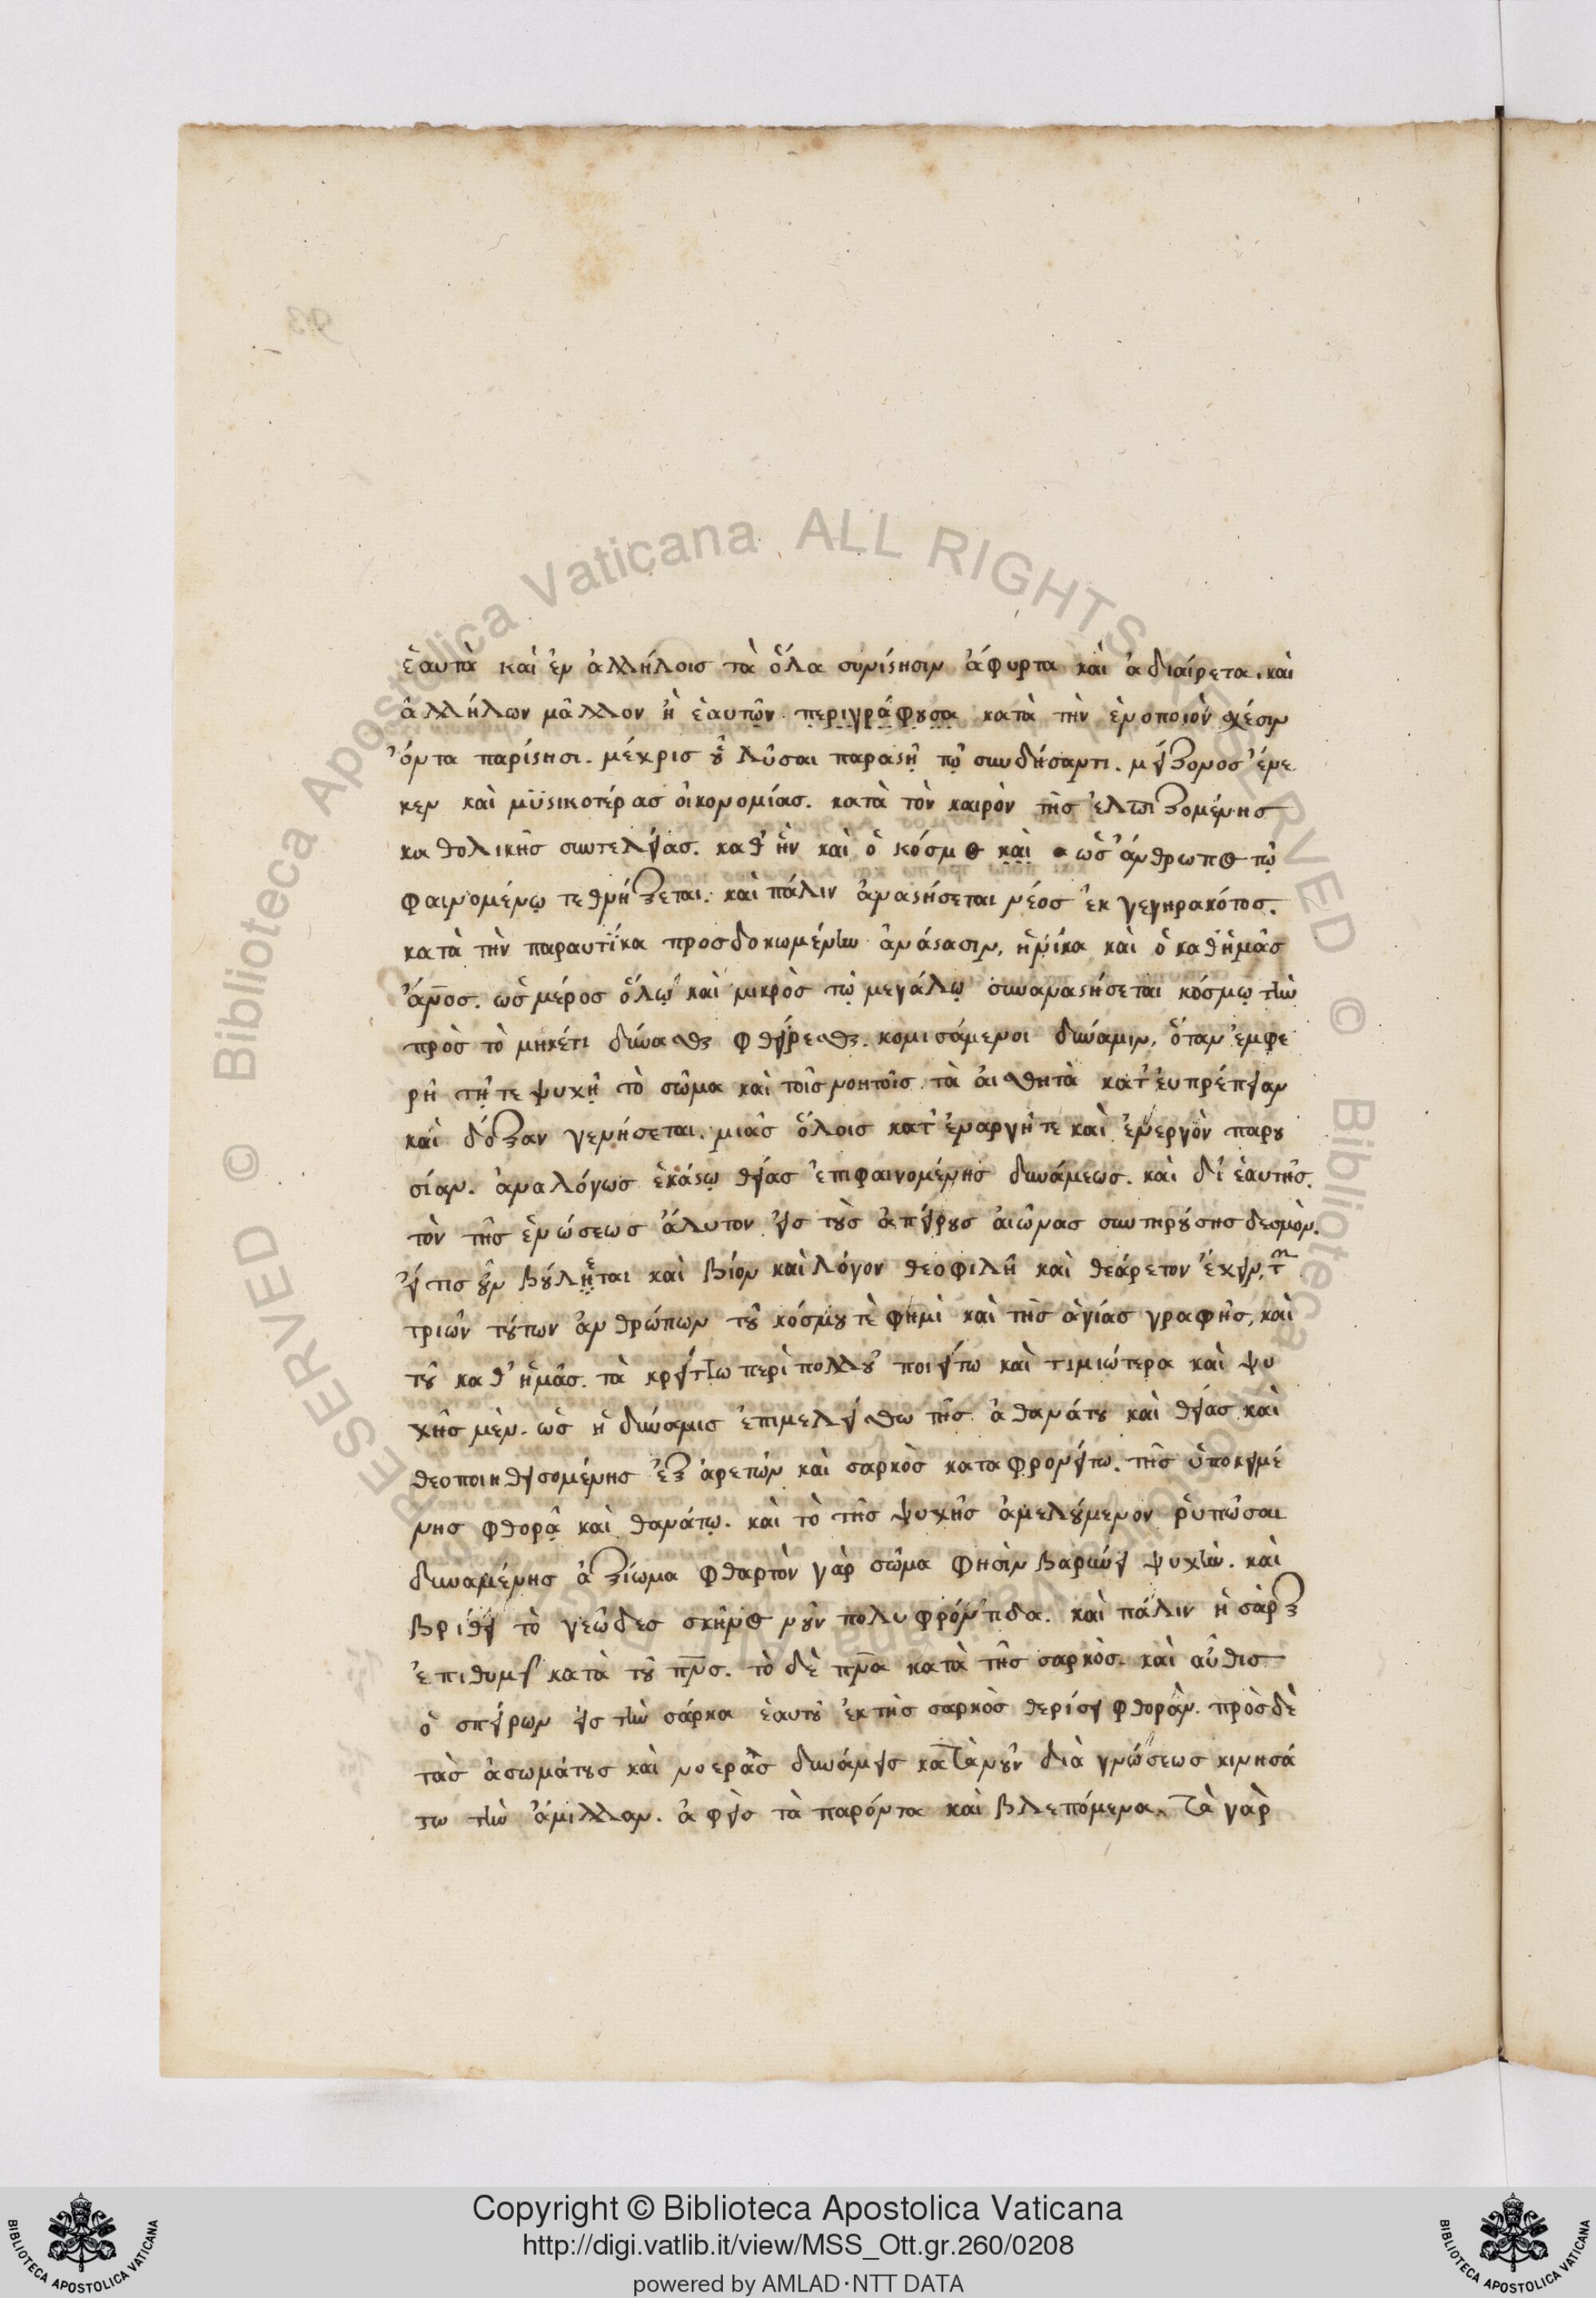 ἑαυτὰ καὶ ἐν ἀλλήλοις τὰ ὅλα συνίστησιν ἄφυρτα καὶ ἀδιαίρετα. καὶ
ἀλλήλων μᾶλλον ἢ ἑαυτῶν περιγράφουσα κατὰ τὴν ἑνοποιὸν σχέσιν
ὄντα παρίστησι. μέχρις οὗ λῦσαι παραστῇ τῷ συνδήσαντι. μείζονος ἕνε
κεν καὶ μυστικοτέρας οἰκονομίας. κατὰ τὸν καιρὸν τῆς ἐλπιζομένης
καθολικῆς συντελείας. καθ' ἣν καὶ ὁ κόσμος καὶ ὡς ἄνθρωπος τῷ
φαινομένῳ τεθνήξεται. καὶ πάλιν ἀναστήσεται νέος ἐκ γεγηρακότος.
κατὰ τὴν παραυτίκα προσδοκωμένην ἀνάστασιν, ἡνίκα καὶ ὁ καθ' ἡμᾶς
ἄνος. ὡς μέρος ὅλῳ καὶ μικρὸς τῷ μεγάλῳ συναναστήσεται κόσμῳ τὴν
πρὸς τὸ μηκέτι δύνασθαι φθείρεσθαι. κομισάμενοι δύναμιν, ὅταν ἐμφε
ρῆ τῇ τε ψυχῇ τὸ σῶμα καὶ τοῖς νοητοῖς τὰ αἰσθητὰ κατ' εὐπρέπειαν
καὶ δόξαν γενήσεται. μιᾶς ὅλοις κατ' ἐναργῆ τε καὶ ἐνεργὸν παρου
σίαν. ἀναλόγως ἑκάστῳ θείας ἐπιφαινομένης δυνάμεως. καὶ δι' ἑαυτῆς.
τὸν τῆς ἑνώσεως ἄλυτον εἰς τοὺς ἀπείρους αἰῶνας συντηρούσης δεσμὸν.
εἴ τις οὖν βούληται καὶ βίον καὶ λόγον θεοφιλῆ καὶ θεάρετον ἔχειν, τῶν
τριῶν τούτων ἀνθρώπων τοῦ κόσμου τὲ φημὶ καὶ τῆς ἁγίας γραφῆς, καὶ
τοῦ καθ' ἡμᾶς. τὰ κρείττω περὶ πολλοῦ ποιείτω καὶ τιμιώτερα καὶ ψυ
χῆς μὲν. ὡς ἡ δύναμις ἐπιμελείσθω τῆς ἀθανάτου καὶ θείας καὶ
θεοποιηθεισομένης ἐξ ἀρετῶν καὶ σαρκὸς καταφρονείτω. τῆς ὑποκειμέ
νης φθορᾷ καὶ θανάτῳ. καὶ τὸ τῆς ψυχῆς ἀμελούμενον ῥυπῶσαι
δυναμένης ἀξίωμα φθαρτὸν γὰρ σῶμα φησὶν βαρύνει ψυχὴν. καὶ
βρίθει τὸ γεῶδες σκῆνος νοῦν πολυφρόντιδα. καὶ πάλιν ἡ σὰρξ
ἐπιθυμεῖ κατὰ τοῦ πνς. τὸ δὲ πνα κατὰ τῆς σαρκὸς. καὶ αὖθις
ὁ σπείρων εἰς τὴν σάρκα ἑαυτοῦ ἐκ τῆς σαρκὸς θερίσει φθορὰν. πρὸς δὲ
τὰς ἀσωμάτους καὶ νοερὰς δυνάμεις κατὰ νοῦν διὰ γνώσεως κινησά
τω τὴν ἅμιλλαν. ἀφεὶς τὰ παρόντα καὶ βλεπόμενα. τὰ γὰρ